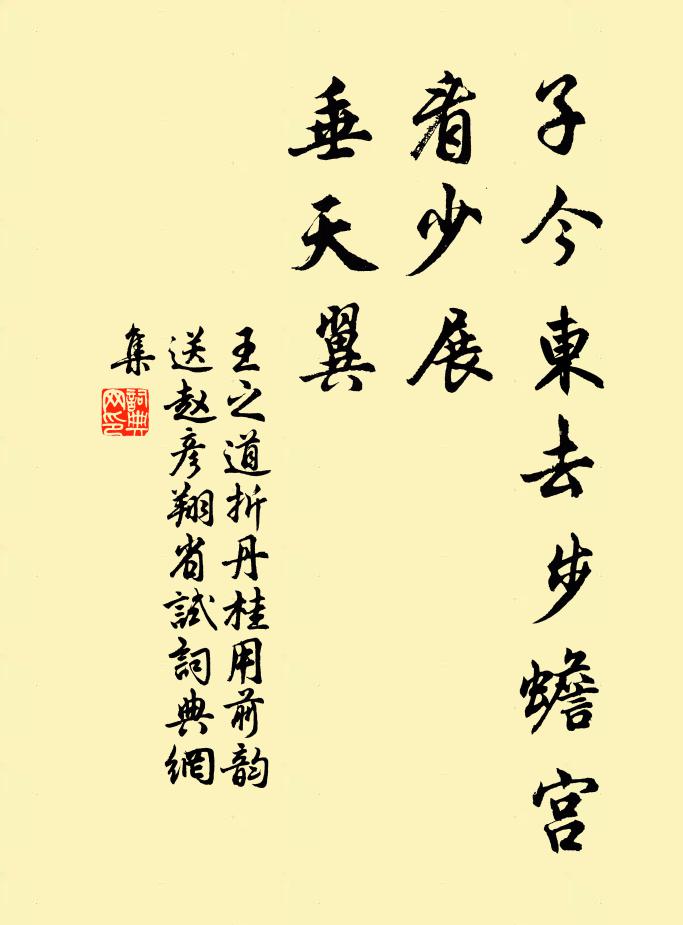 子今東去步蟾宫
看少展
垂天翼
王之道折丹桂用前韵
送赵彦翔省試詞典網
集
詞典
网印